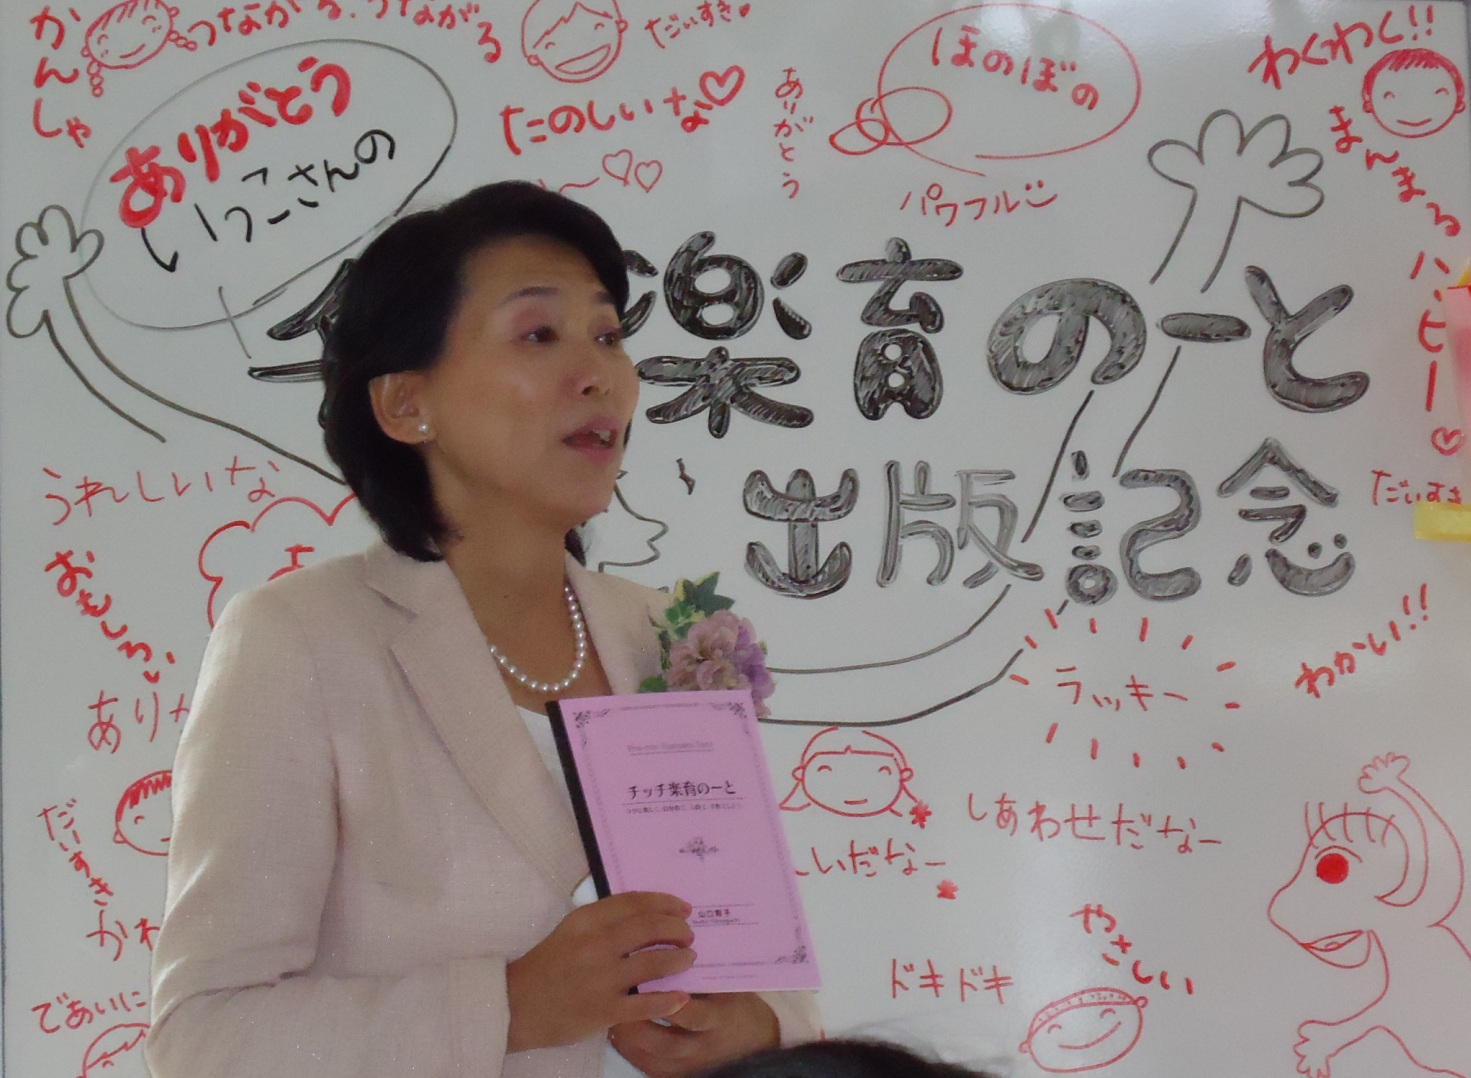 かんしゃ
つながる、つながる
だいすき
ありがとう
いっこさんの
たのしいな
ありがとう
ほのぼの
パワフル
わくわく!!
まんまる
ハッピー
楽育のーと
出版記念
うれしいな
おもしろい
だいすき
わかい!!
ラッキー
チッチ楽育のーと
だいすき
しあわせだなー
しいだなー
やさしい
ドキドキ
であいに